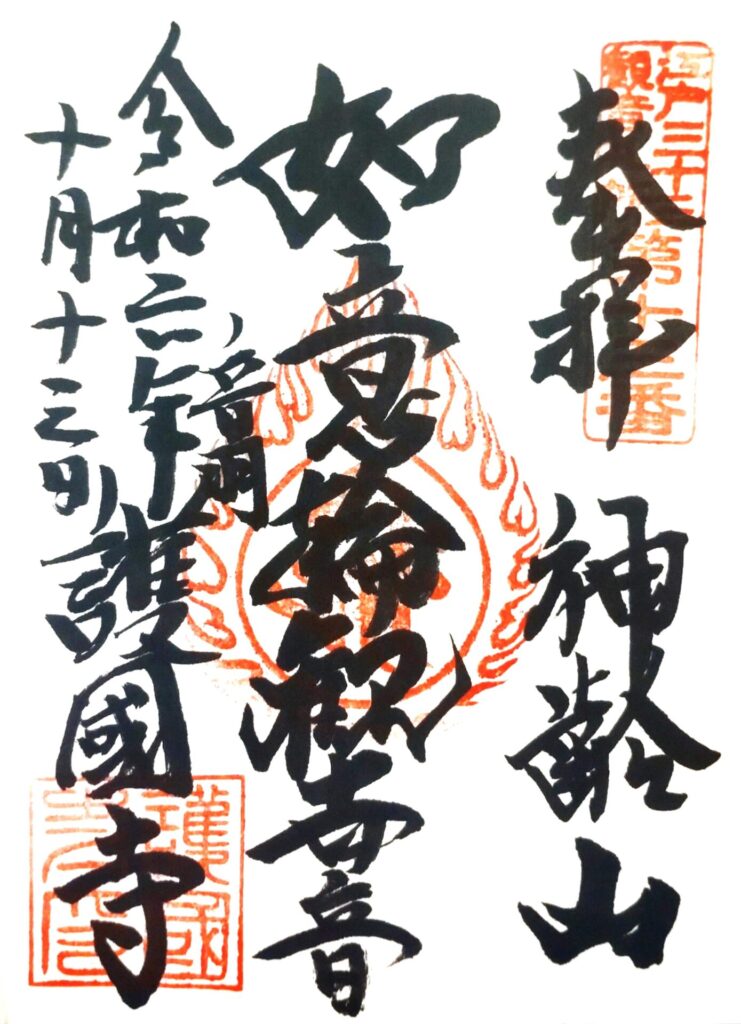 江戸三十三
観音札所第十三番
奉拝
神齡山
如意輪観世音
音羽
護國寺
令和六年
十月十三日